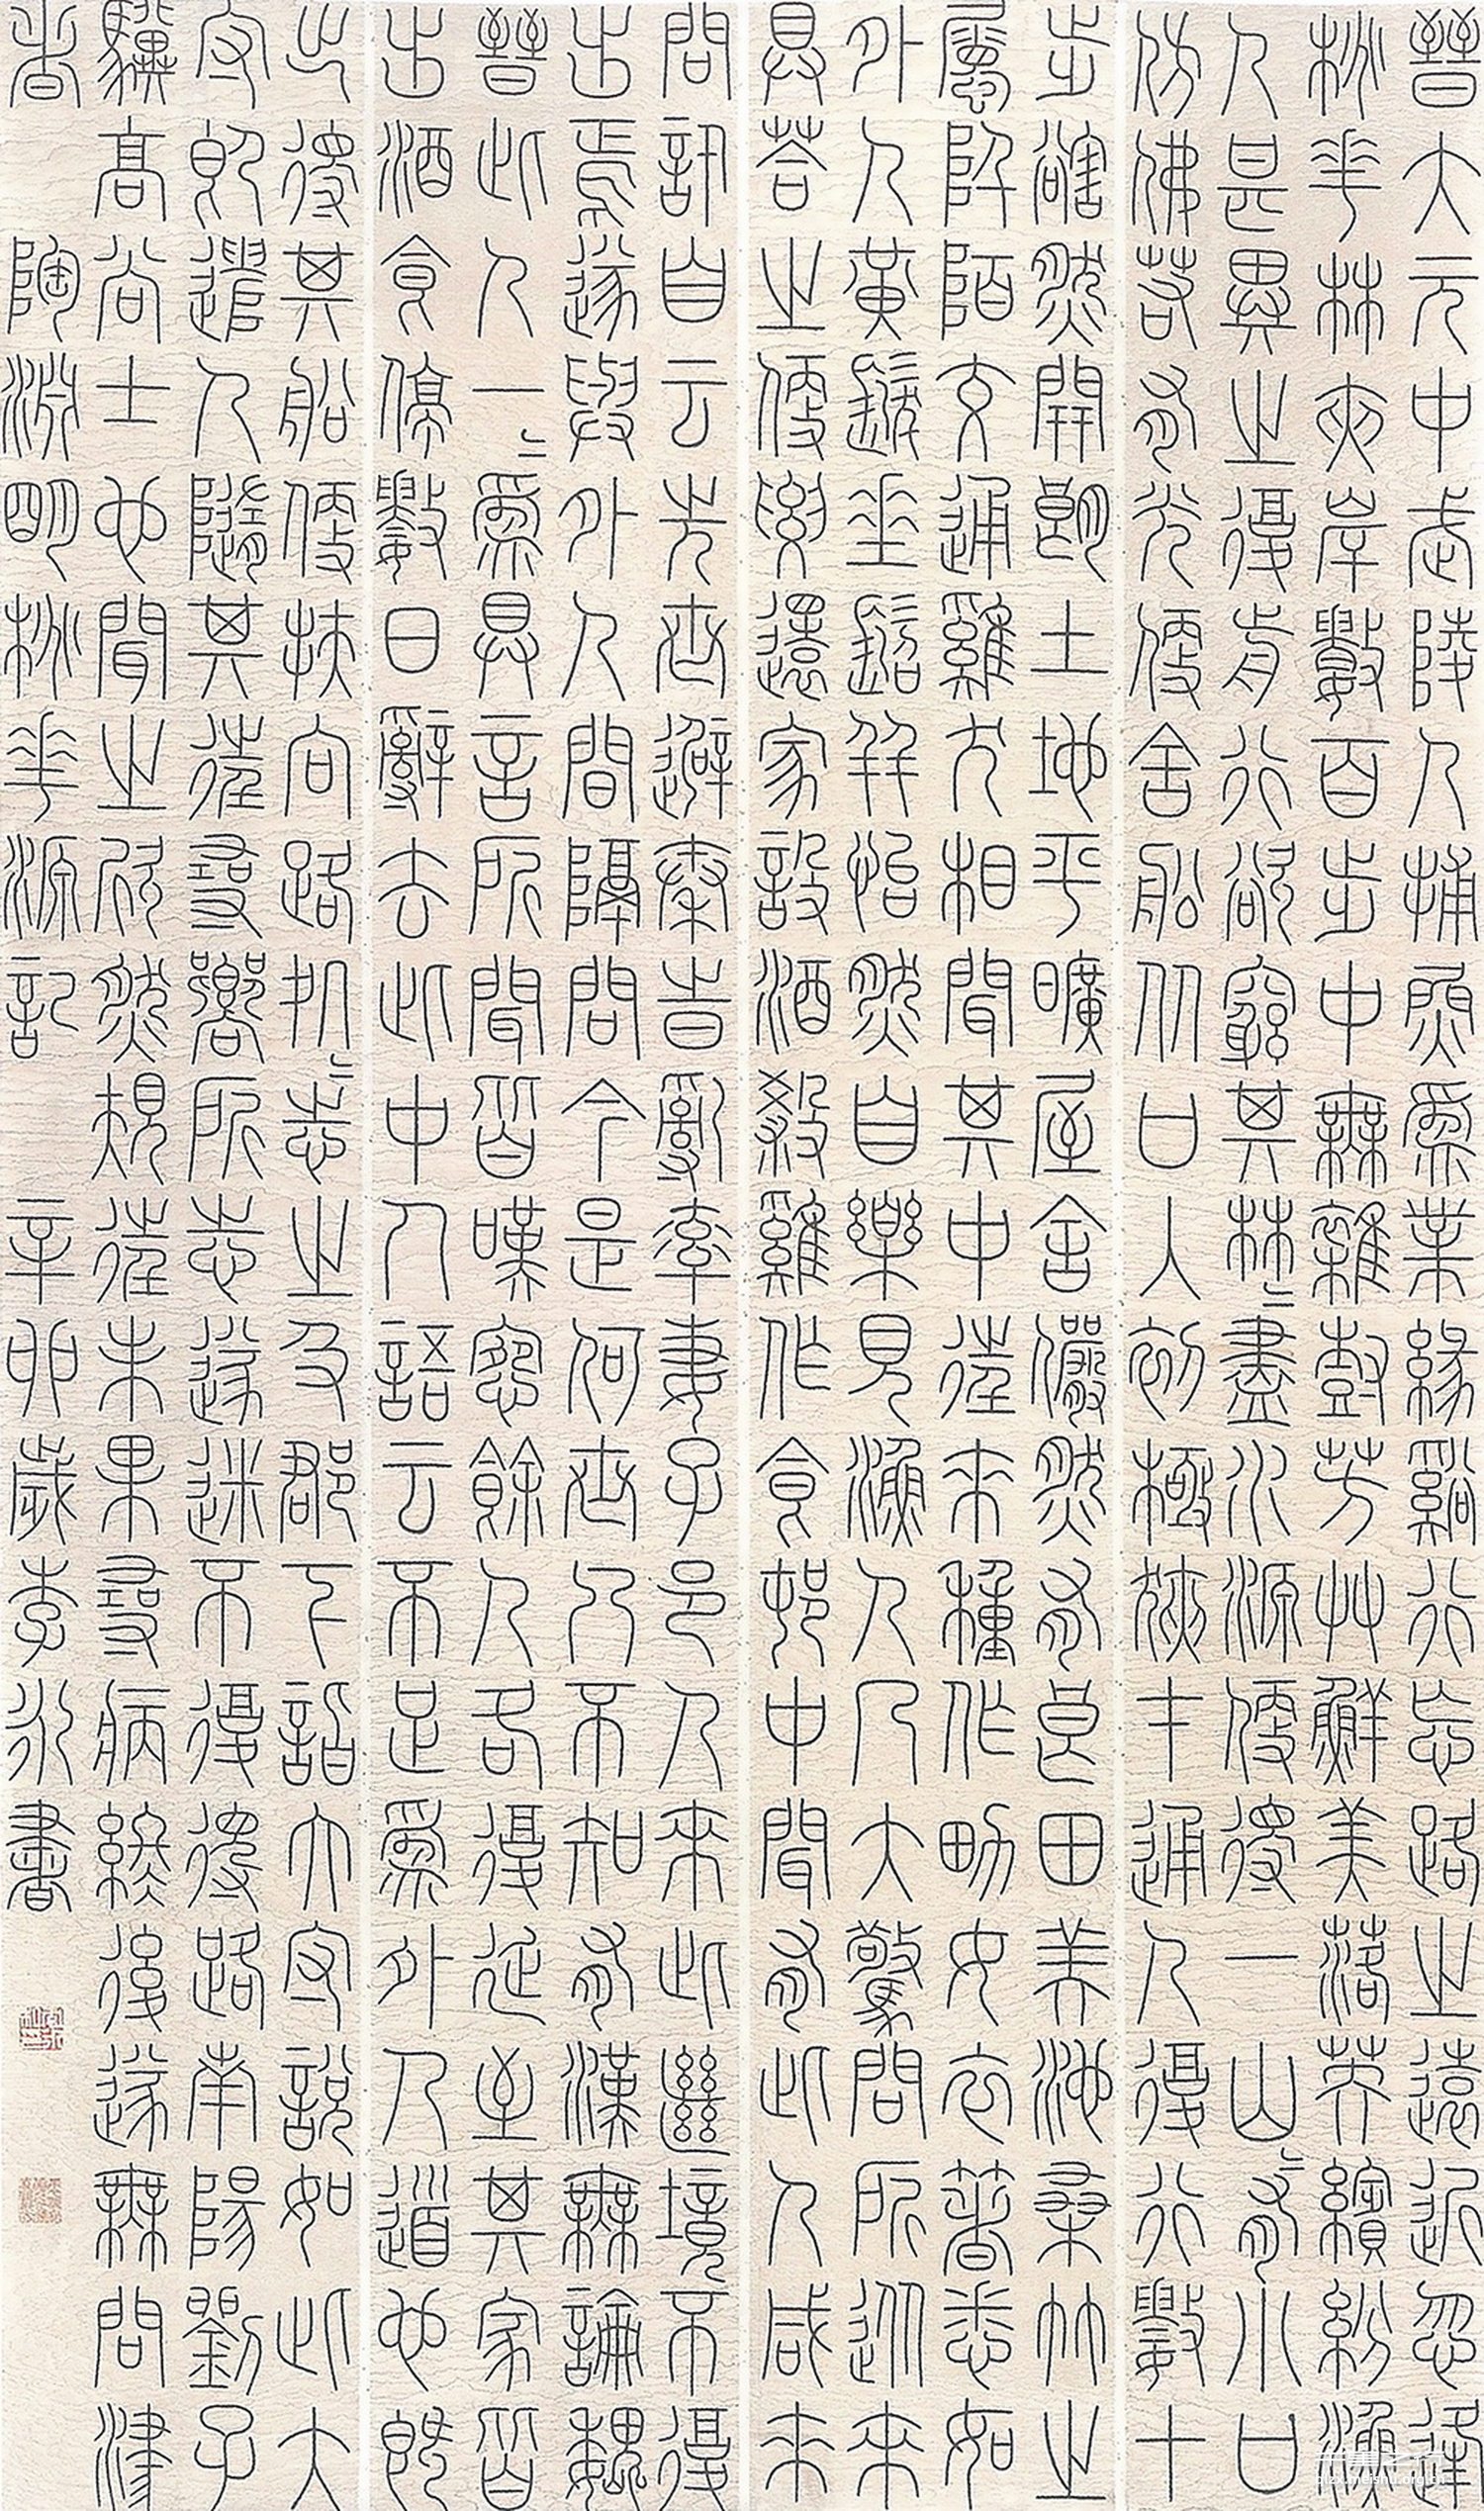 晉大元中武陵人捕魚爲業緣谿行忘路之遠近忽逢
桃華林夾岸數百步中無雜樹芳艸鮮美落英繽紛漁
人甚異之復前行欲窮其林〻盡水源便得一山〻有小口
仿佛若有光便舍船从口入初極狹才通人復行數十
步豁然開朗土地平曠屋舍儼然有良田美池桑竹之
屬阡陌交通雞犬相聞其中往來種作男女衣著悉如
外人黃髮垂髫并怡然自樂見漁人乃大驚問所从來
具荅之便要還家設酒殺雞作食邨中聞有此人咸來
問訊自云先世避秦時亂率妻子邑人來此絕境不復
出焉遂與外人間隔問今是何世乃不知有漢無論魏
晉此人一〻爲具言所聞皆嘆惋餘人各復延至其家皆
出酒食停數日辭去此中人語云不足爲外人道也既
出得其船便扶向路処〻志之及郡下詣太守說如此太
守即遣人隨其往尋曏所志遂迷不復得路南陽劉子
驥高尚士也聞之欣然規往未果尋病終後遂無問津
者 陶淵明桃華源記 辛卯歲李永書